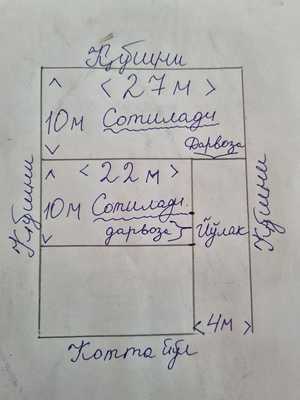 Қўшни
< 27м >
10м Сотилади
Дарвоза
Қўшни
< 22м >
10м Сотилади
дарвоза
Йўлак
Қўшни
< 4м >
Котта йўл